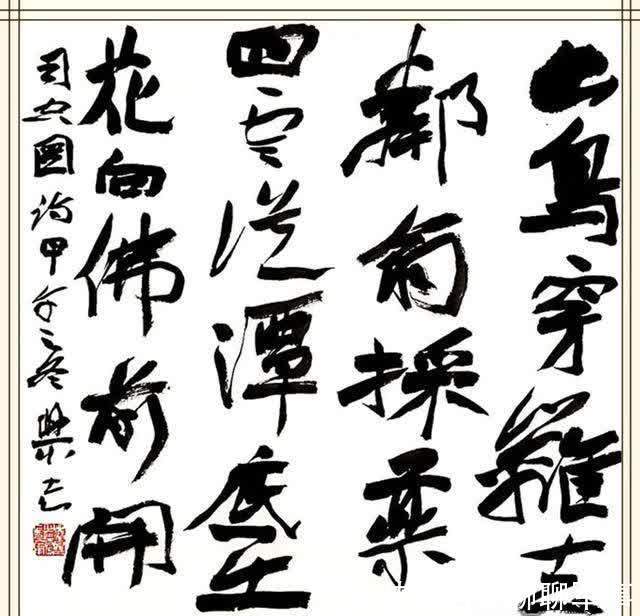 山鳥穿籬去
鄰翁採藥
回雲從潭底出
花向佛前開
司空圖詩甲午之冬樂